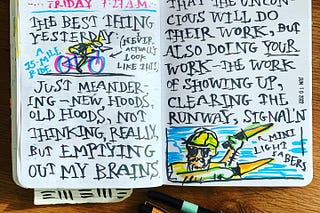 FRIDAY 7:27 A.M.
THE BEST THING
YESTERDAY—
(NEVER
ACTUALLY
LOOK
LIKE THIS)
A
15-MILE
RIDE
JUST MEANDER-
ING—NEW HOODS,
OLD HOODS, NOT
THINKING, REALLY,
BUT EMPTYING
OUT MY BRAINS
THAT THE UNCON-
CIOUS WILL DO
THEIR WORK, BUT
ALSO DOING YOUR
WORK—THE WORK
OF SHOWING UP,
CLEARING THE
RUNWAY, SIGNAL'N
MINI
LIGHT
SABERS
JUN 10 2022